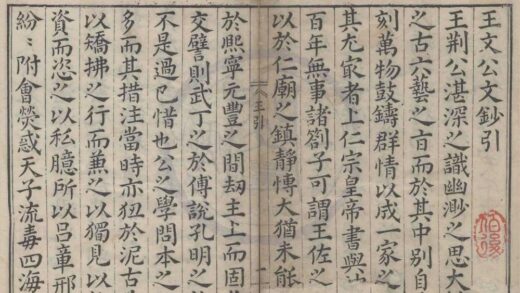 王文公文鈔引
王荆公湛深之識幽渺之思大
之古六藝之㫖而於其中別自
刻萬物鼓鑄群情以成一家之
其尤㝡者上仁宗皇帝書與
百年無事諸劄子可謂王佐之
以於仁廟之鎮静愽大猶未能
王引
於熙寧元豐之間刼主上而固
交譬則武丁之於傅說孔明之
不是過已惜也公之學問本之
多而其措注當時亦狃於泥古
以矯拂之行而兼之以獨見以
資而恣之以私臆所以吕章邢
紛〻附會熒惑天子流毒四海